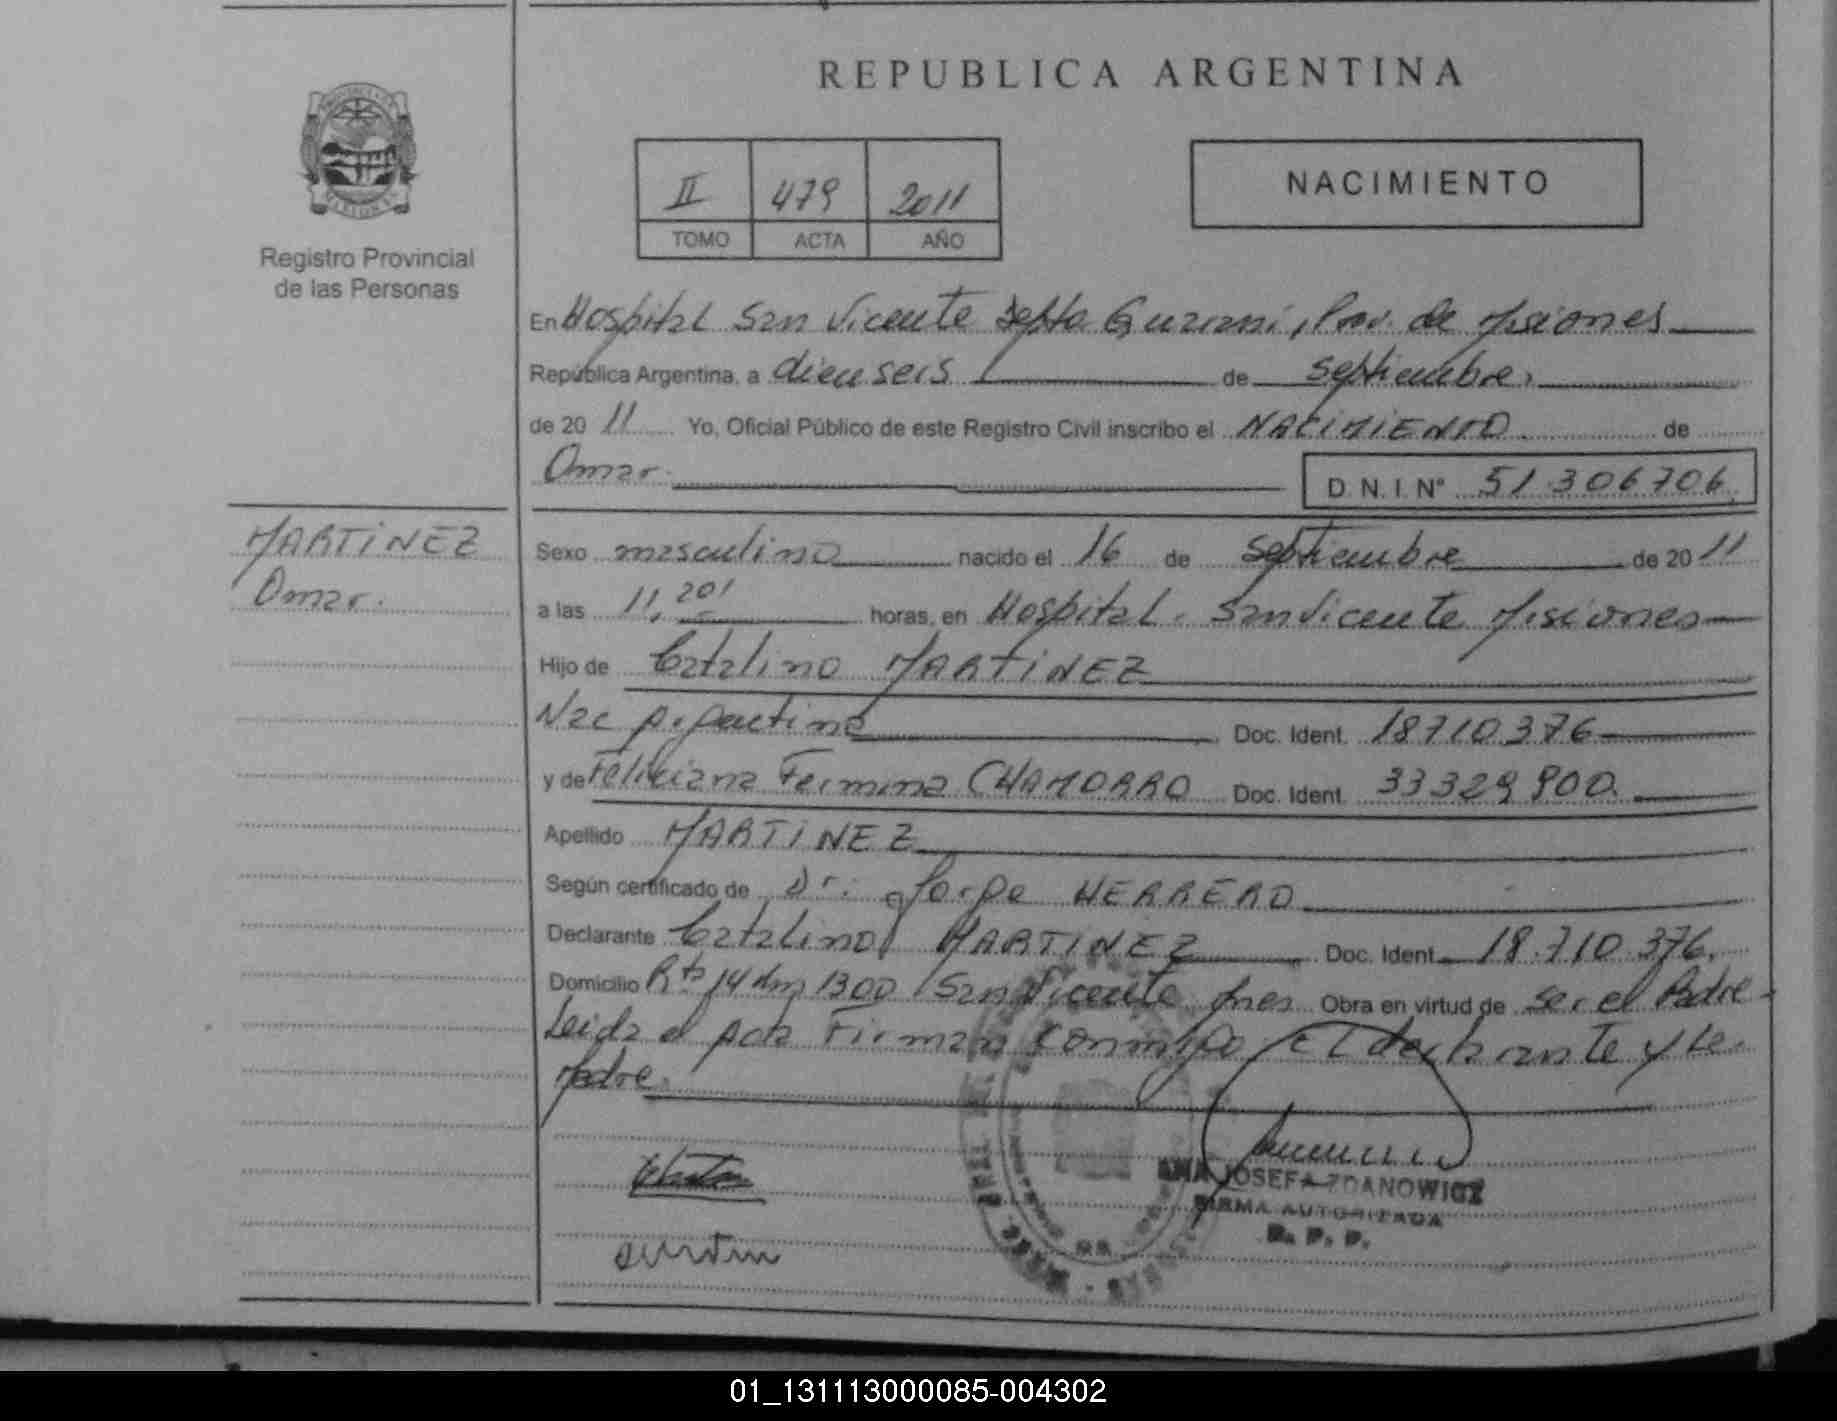 REPUBLICA ARGENTINA
PROVINCIA DE
MISIONES
Registro Provincial
de las Personas
II 479 2011
TOMO ACTA AÑO
NACIMIENTO
En Hospital San Vicente Depto Guarani, Prov. de Misiones
República Argentina, a dieciseis de Septiembre
de 2011 Yo, Oficial Público de este Registro Civil inscribo el NACIMIENTO de
Omar D.N.I.Nº 51.306706
MARTINEZ
Omar.
Sexo masculino nacido el 16 de Septiembre de 2011
a las 11,20' horas, en Hospital San Vicente Misiones
Hijo de Catalino MARTINEZ
Nac Doc. Ident. 18710376
y de Feliciana Fermina CHAMORRO Doc. Ident. 33329900.
Apellido MARTINEZ
Según certificado de Dr. Jorge HERRERO
Declarante Catalino MARTINEZ Doc. Ident. 18.710.376.
Domicilio Rta 14 km 1300 San Vicente Mnes Obra en virtud de ser el Padre
Leida el acta Firman conmigo El declarante y la
Madre.
ANA JOSEFA ZDANOWICZ
FIRMA AUTORIZADA
R. P. P.
01_131113000085-004302